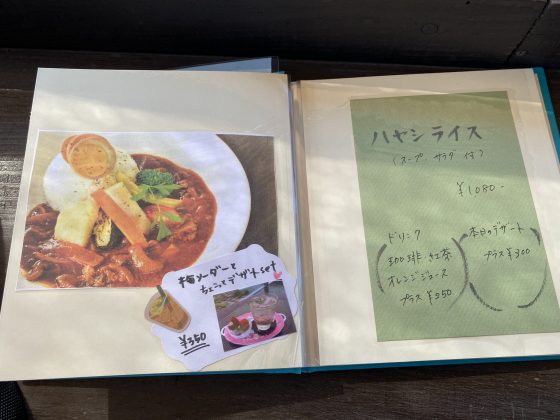 梅ソーダーと
ちょこっとデザートset
¥350
ハヤシライス
(スープ サラダ 付)
¥1080-
ドリンク
珈琲・紅茶
オレンジジュース
プラス ¥250
本日のデザート
プラス ¥300